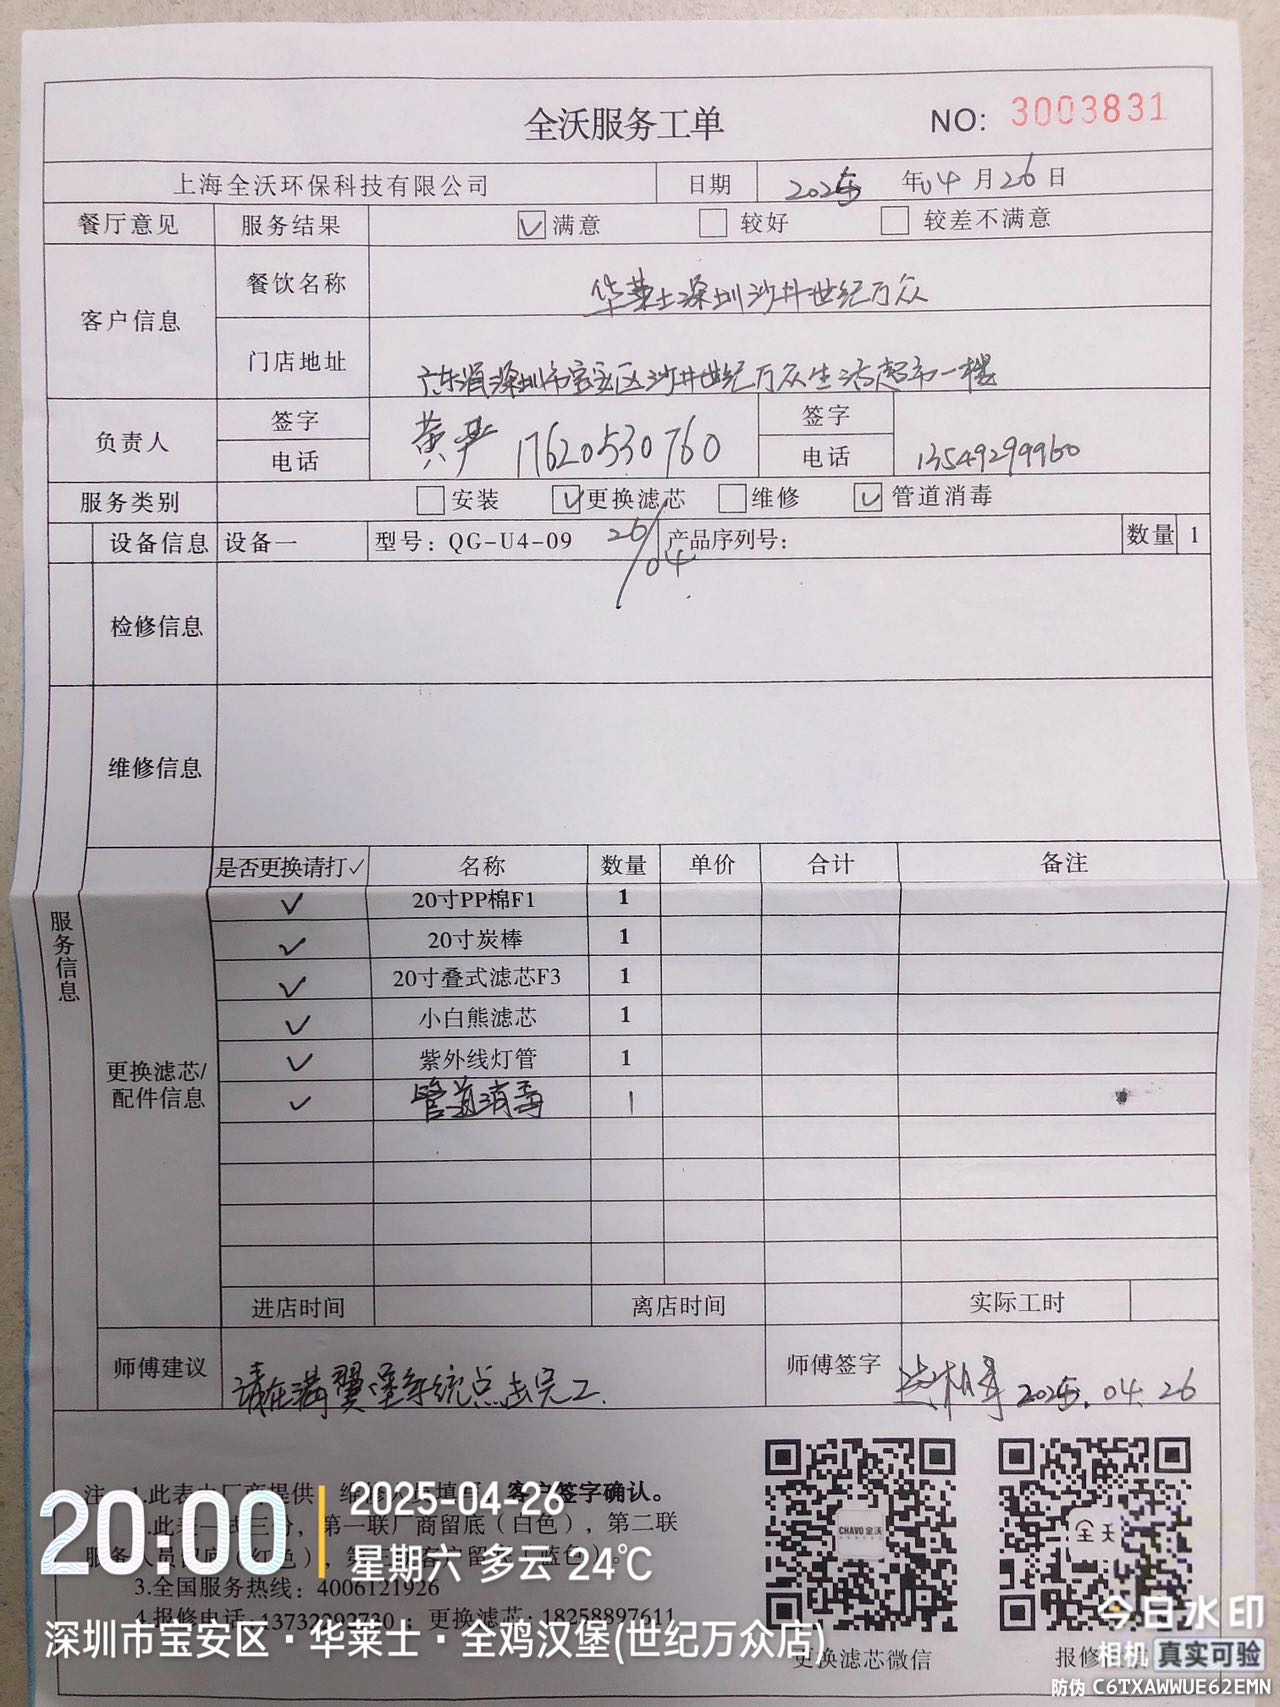 全沃服务工单 NO: 3003831
上海全沃环保科技有限公司 日期 2025 年 04 月 26 日
餐厅意见 服务结果 ☑满意 □较好 □较差不满意
客户信息 餐饮名称 华莱士深圳沙井世纪万众
门店地址 广东省深圳市宝安区沙井世纪万众生活超市一楼
负责人 签字 黄严 签字
电话 17620530760 电话 13549299960
服务类别 □安装 ☑更换滤芯 □维修 ☑管道消毒
设备信息 设备一 型号: QG-U4-09 26/04 产品序列号: 数量 1
检修信息
维修信息
服务信息
是否更换请打✓ 名称 数量 单价 合计 备注
✓ 20寸PP棉F1 1
✓ 20寸炭棒 1
✓ 20寸叠式滤芯F3 1
✓ 小白熊滤芯 1
更换滤芯/配件信息
✓ 紫外线灯管 1
✓ 管道消毒 1
进店时间 离店时间 实际工时
师傅建议 请在满翼堡系统点击完工. 师傅签字 2025.04.26
注 1.此表由厂商提供 维修 填写 客户签字确认。
.此表一式三份，第一联厂商留底（白色），第二联
服务人员留底（红色），第三 客户留 （蓝色）。
3.全国服务热线: 4006121926
4.报修电话:13732292730 ；更换滤芯:18258897611
CHAVO 全沃
全沃
更换滤芯微信
报修
20:00
2025-04-26
星期六 多云 24℃
深圳市宝安区·华莱士·全鸡汉堡(世纪万众店)
今日水印
相机 真实可验
防伪 C6TXAWWUE62EMN